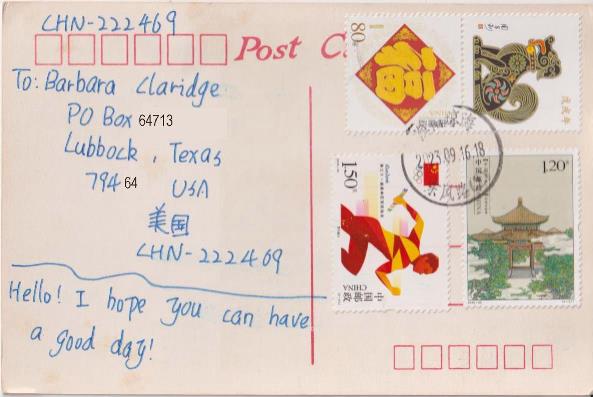 CHN-222469
Post C
To: Barbara Claridge
PO Box 64713
Lubbock, Texas
79464
USA
美国
CHN-222469
Hello! I hope you can have
a good day!
80
福
戊戌年
2023.09.16.18
1.50
中国邮政
CHINA
1.20
中国邮政
CHINA